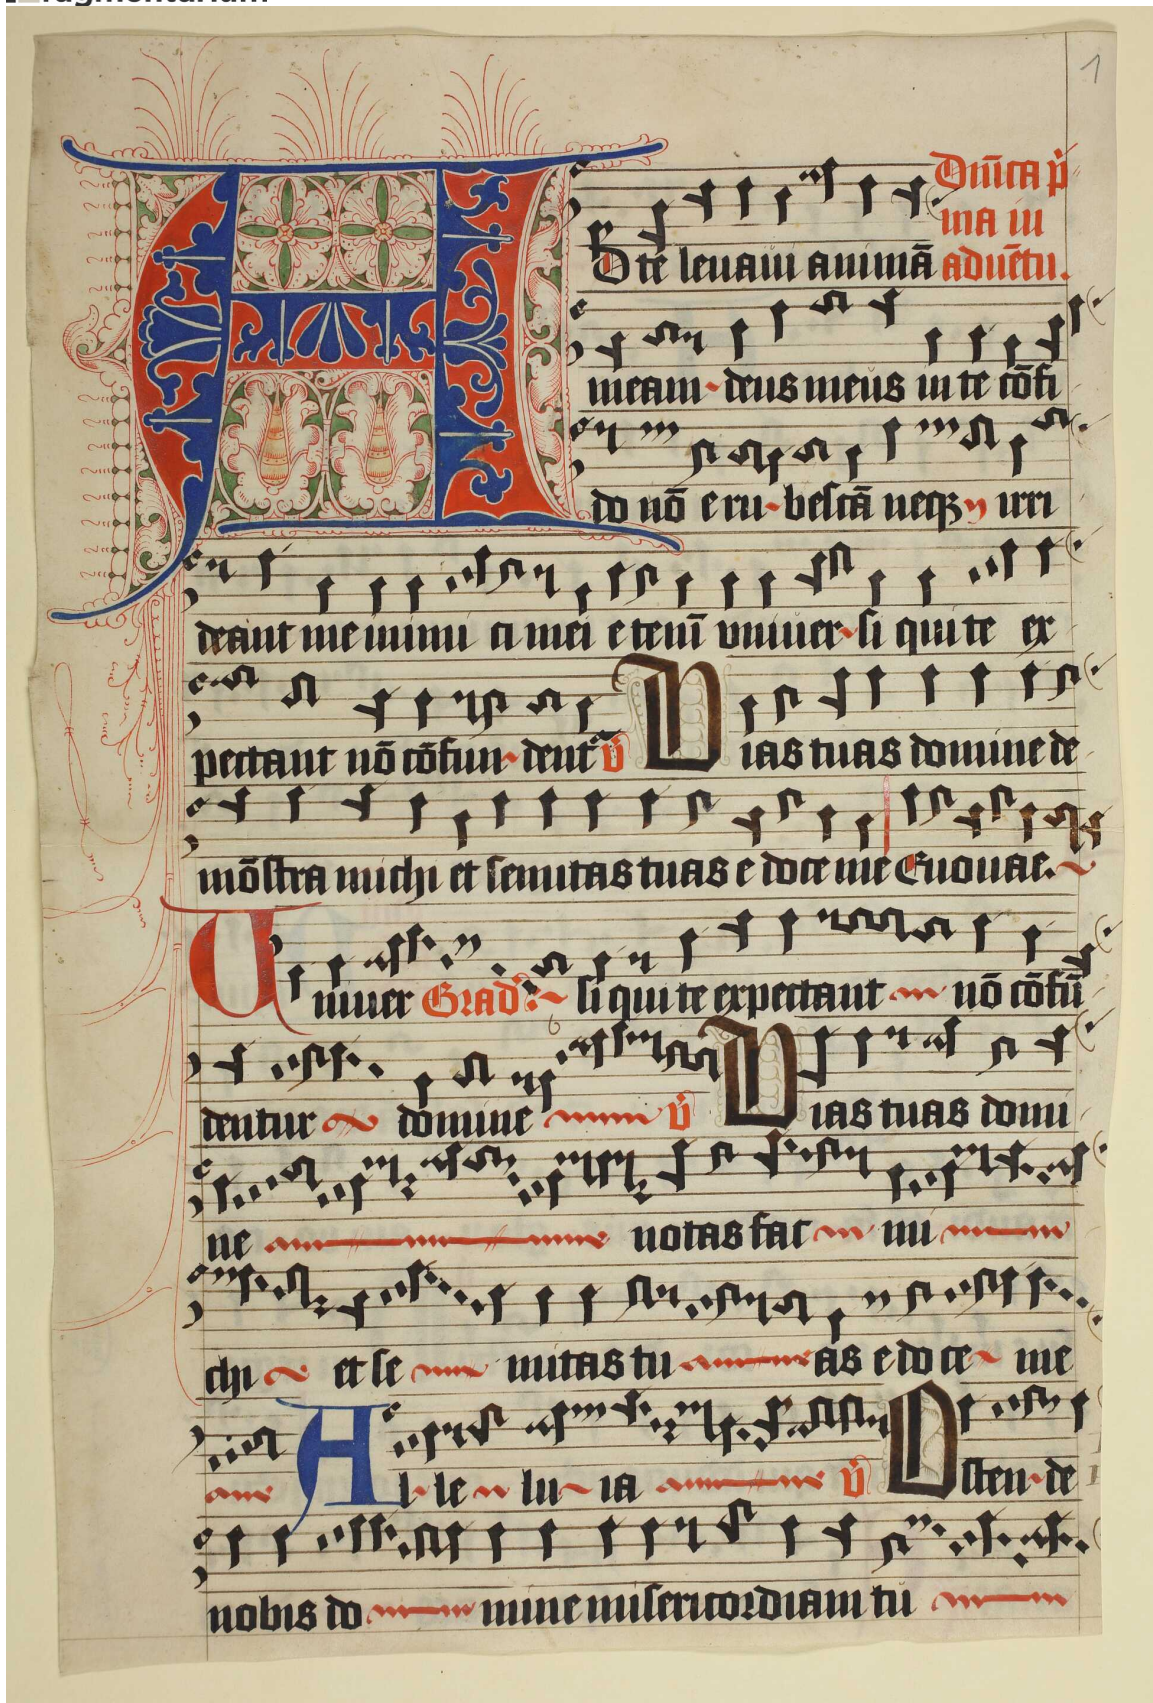 1
A
Dn̄ica p̄
D te leuaui animā ma in
aduētu.
meam deus meus in te cōfi
do nō eru bescā neqꝫ irri
deant me inimi ci mei etenī vniuer si qui te ex
pectant nō cōfun dent᷑ v̄ Vias tuas domine de
mōstra michi et semitas tuas e doce me Euouae.
Vniuer Grad᷑ si qui te expectant nō cōfū
dentur domine v̄ Vias tuas domi
ne notas fac mi
chi et se mitas tu as e do ce me
Al le lu ia v̄ Osten de
nobis do mine misericordiam tu